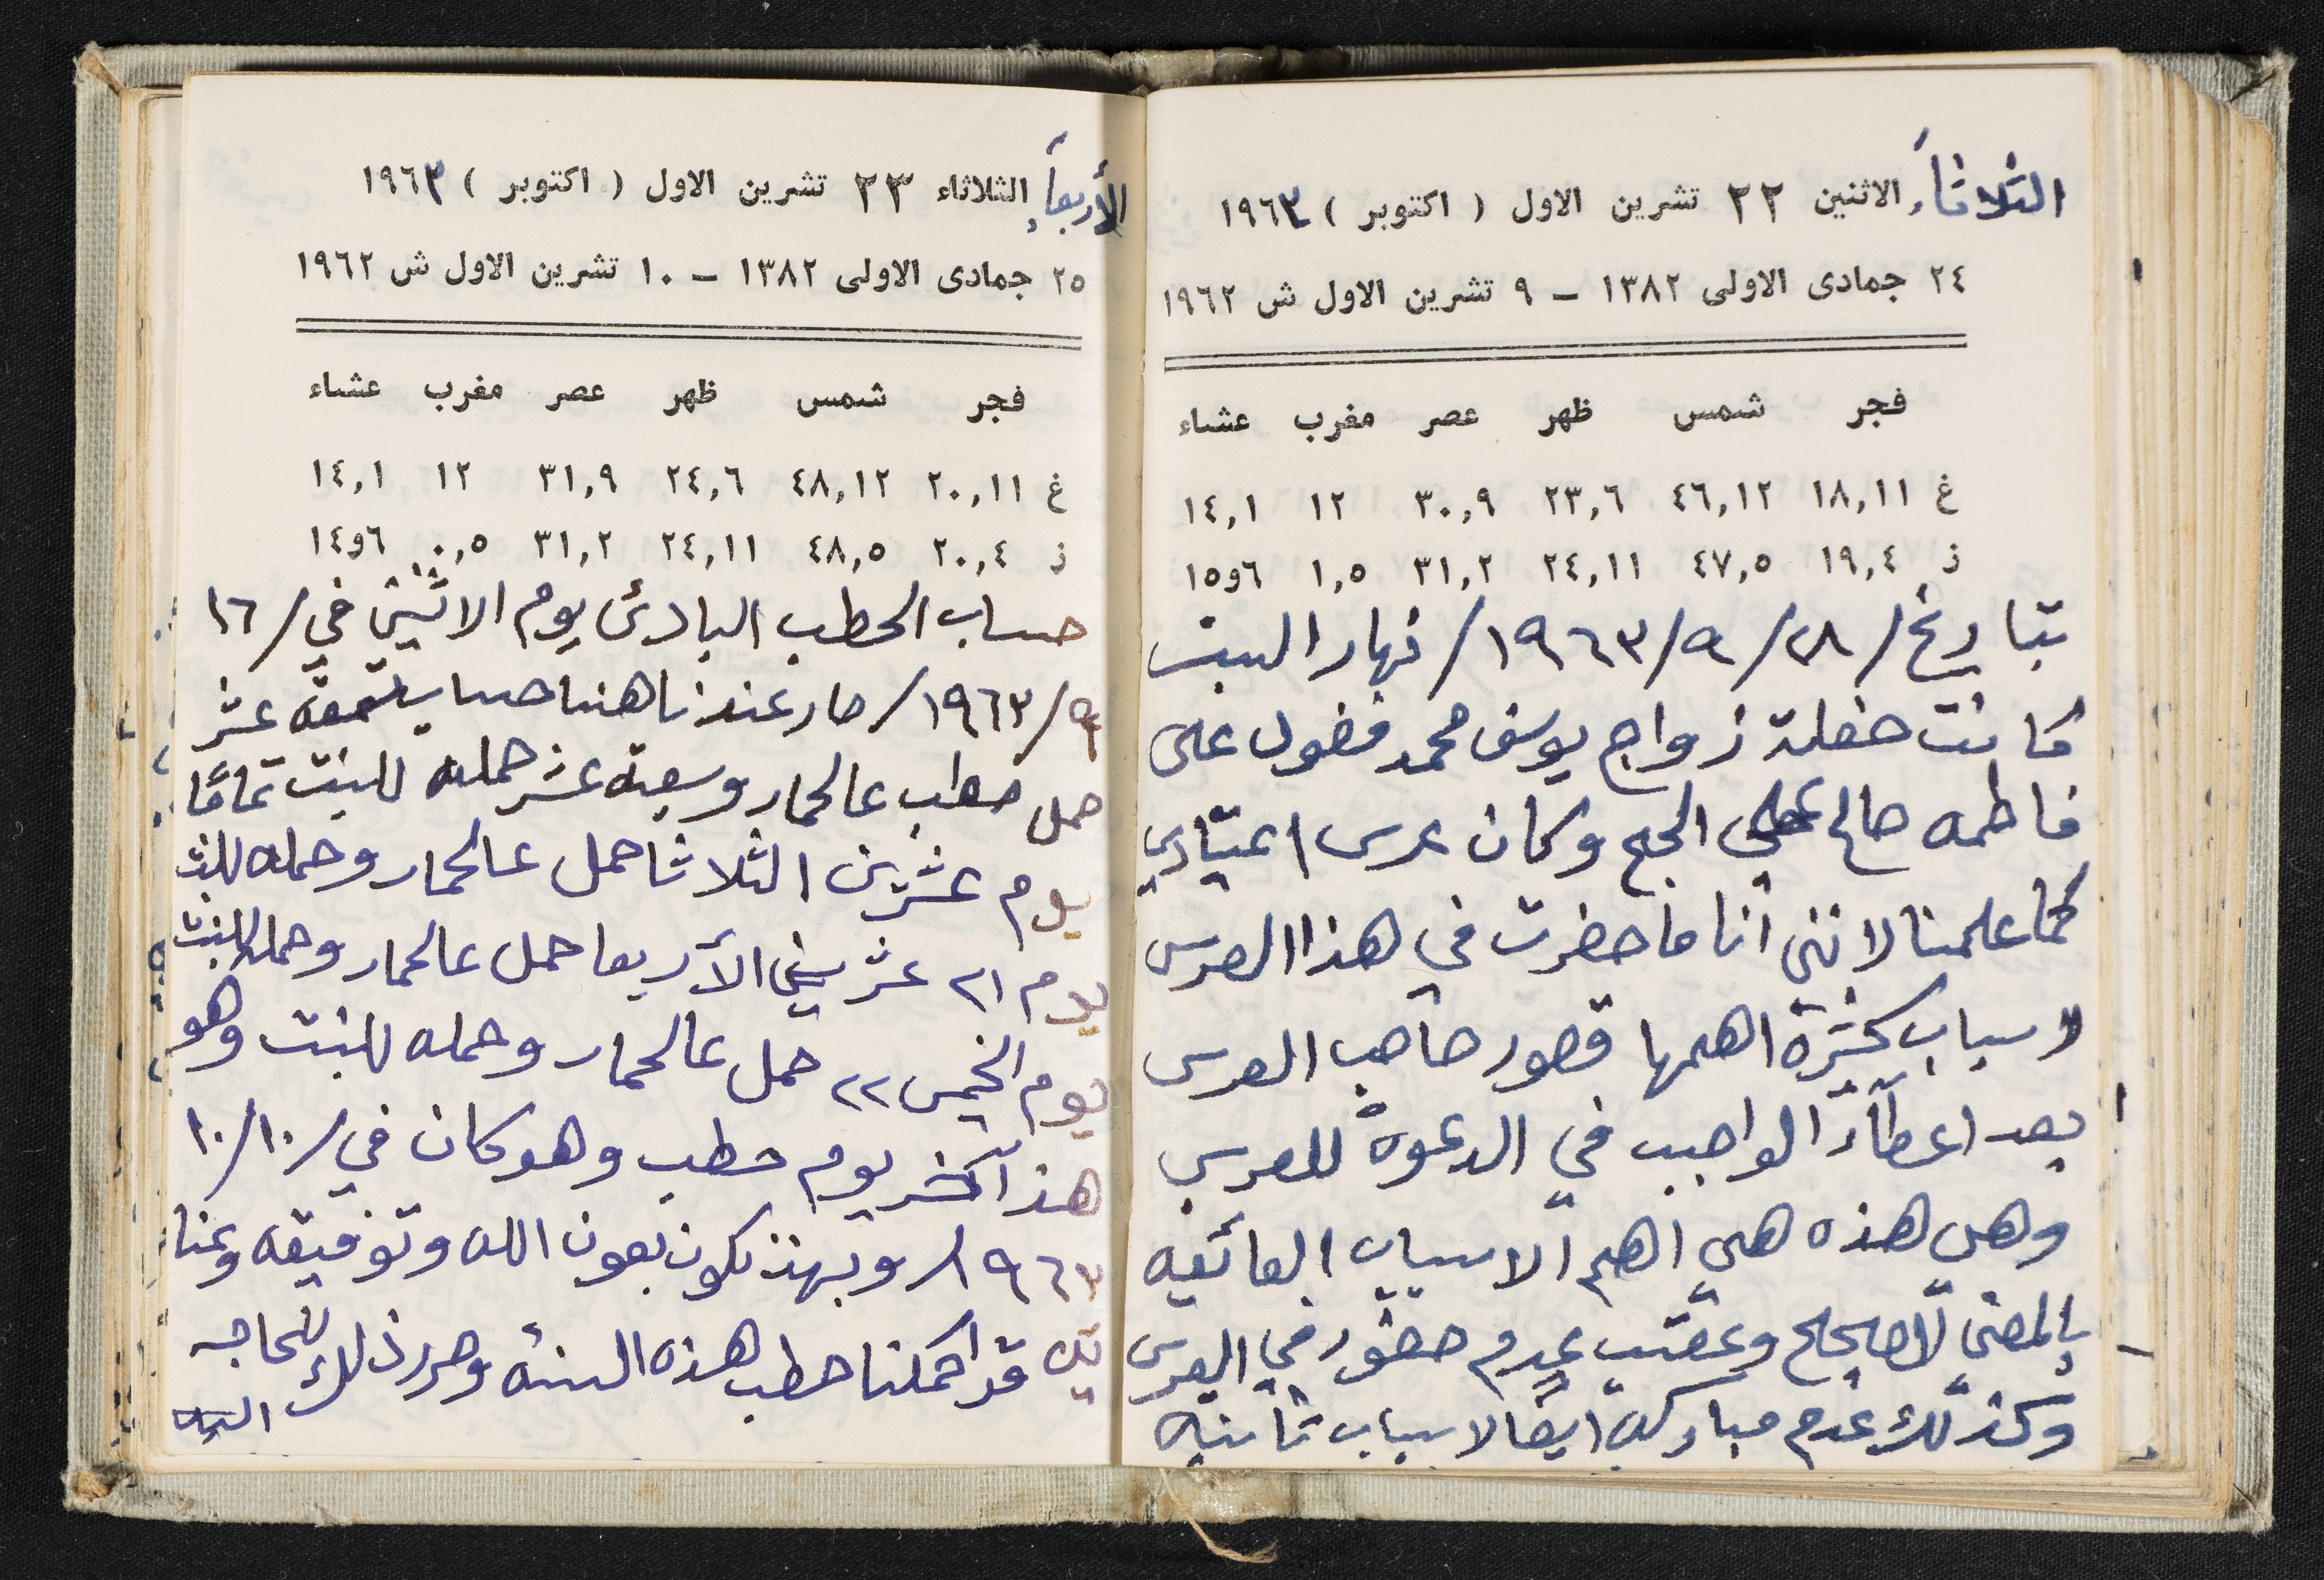 الثلاثاء الاثنين ٢٢ تشرين الاول ( اكتوبر ) ١٩٦٣
٢٤ جمادى الاولى ١٣٨٢ – ٩ تشرين الاول ش ١٩٦٢
فجر شمس ظهر عصر مغرب عشاء
غ ١٨,١١ ٤٦,١٢ ٢٣,٦ ٣٠,٩ ١٢ ١٤,١
ز ١٩,٤ ٤٧,٥ ٢٤,١١ ٣١,٢ ١,٥ ٦و١٥
بتاريخ /٢٨ /٩ /١٩٦٣/ نهار السبت
كانت حفلة زواج يوسف محمد فضول على
فاطمه صالح علي الحج وكان عرس اعتيادي
كما علمنا لانني أنا ما حضرت في هذا العرس
لاسباب كثيرة اهمها قصور صاحب العرس
بعد اعطاء الواجب في الدعوة للعرس
وهل هذه هي اهم الاسباب العائقه
بالمعنى الاصح وعقب عدم حضور في العرس
وكذلك عدم مباركه ايضا لاسباب ثانيه
الأربعاء الثلاثاء ٢٣ تشرين الاول ( اكتوبر ) ١٩٦٣
٢٥ جمادى الاولى ١٣٨٢ – ١٠ تشرين الاول ش ١٩٦٢
فجر شمس ظهر عصر مغرب عشاء
غ ٢٠,١١ ٤٨,١٢ ٢٤,٦ ٣١,٩ ١٢ ١٤,١
ز ٢٠,٤ ٤٨,٥ ٢٤,١١ ٣١,٢ ٠,٥ ٦و١٤
حساب الحطب البادئ يوم الاثنين في /١٦
٩/ ١٩٦٣/ صار عندنا هنا حساب عشر
حمل حطب عالحمار وسبعة عشر حمله للبنت تمامًا
يوم عشرين الثلاثا حمل عالحمار وحمله للبنت
يوم ٢١ عشرين الأربعا حمل عالحمار وحمله للبنت
يوم الخميس ٢٢ حمل عالحمار وحمله للبنت وهو
هذا آخر يوم حطب وهو كان في /١٠/١٠
١٩٦٣/ وبهذ نكون بعون الله وتوفيقه وعنا
يته قد اكملنا حطب هذه السنه وحرر ذلك للحاجه
اليه